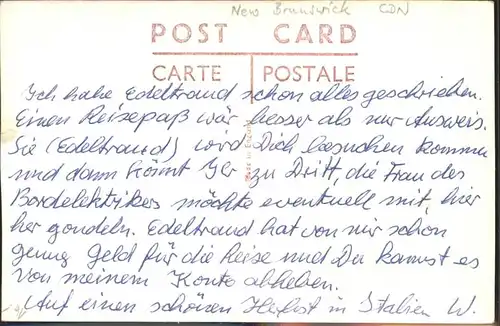 New Brunswick CDN
POST CARD
CARTE POSTALE
Ich habe Edeltraud schon alles geschrieben.
Einen Reisepaß wär besser als nur Ausweis.
Sie (Edeltraud) wird Dich besuchen kommen
und dann könnt Ihr zu Dritt, die Frau des
Bordelektrikers möchte eventuell mit, hier
her gondeln. Edeltraud hat von mir schon
genug Geld für die Reise und Du kannst es
von meinem Konto abheben.
Auf einen schönen Herbst in Italien W.